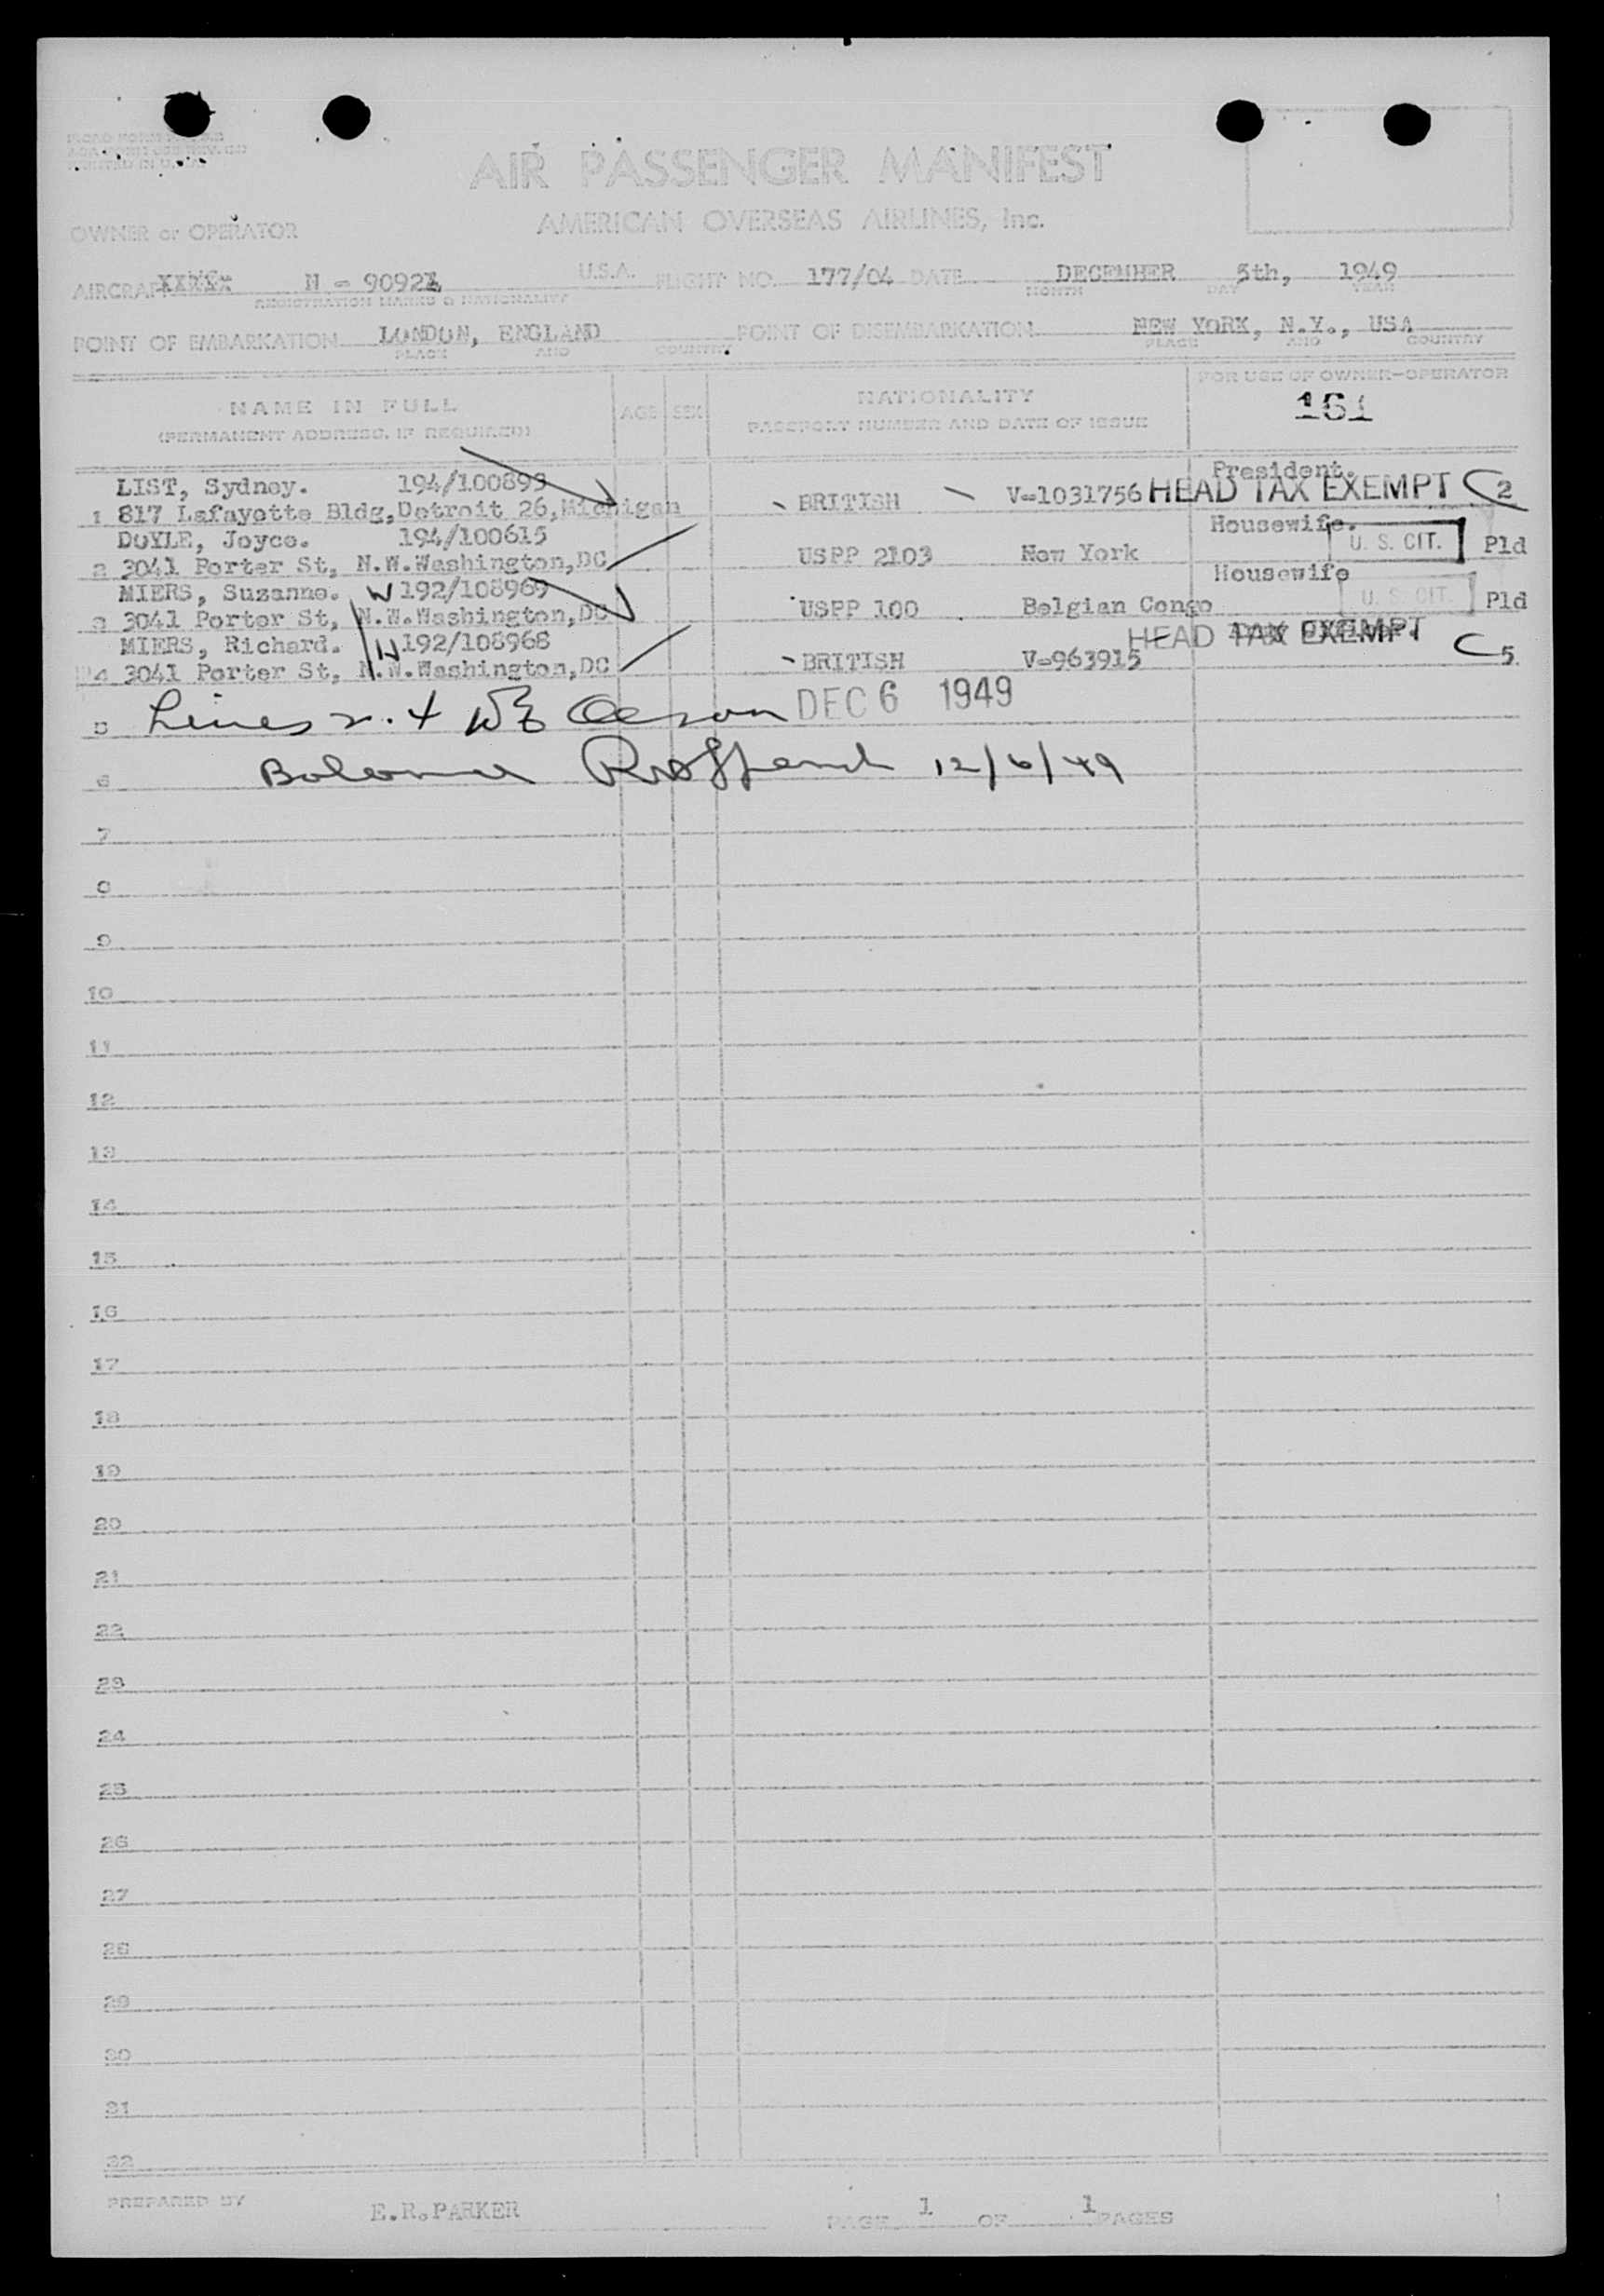 AIR PASSENGER MANIFEST
OWNER or OPERATOR AMERICAN OVERSEAS AIRLINES, Inc.
AIRCRAFT N - 9092 U.S.A. FLIGHT NO. 177/04 DATE DECEMBER 5th, 1949
REGISTRATION MARKS & NATIONALITY MONTH DAY YEAR
POINT OF EMBARKATION LONDON, ENGLAND POINT OF DISEMBARKATION NEW YORK, N.Y., USA
PLACE AND COUNTRY PLACE AND COUNTRY
NAME IN FULL AGE SEX NATIONALITY FOR USE OF OWNER-OPERATOR
(PERMANENT ADDRESS, IF REQUIRED) PASSPORT NUMBER AND DATE OF ISSUE 161
LIST, Sydney. 194/100899 President.
1 817 Lafayette Bldg, Detroit 26, Michigan BRITISH V-1031756 HEAD TAX EXEMPT C 2
DOYLE, Joyce. 194/100615 Housewife.
2 3041 Porter St, N.W.Washington,DC USPP 2103 New York U. S. CIT. Pld
MIERS, Suzanne. W 192/108969 Housewife
3 3041 Porter St, N.W.Washington,DC USPP 100 Belgian Congo U. S. CIT. Pld
MIERS, Richard. H 192/108968 HEAD TAX EXEMPT
4 3041 Porter St, N.W.Washington,DC BRITISH V-963915 C 5
5 Lines 2. + DEC 6 1949
6 12/6/49
7
8
9
10
11
12
13
14
15
16
17
18
19
20
21
22
23
24
25
26
27
28
29
30
31
32
PREPARED BY E.R.PARKER PAGE 1 OF 1 PAGES